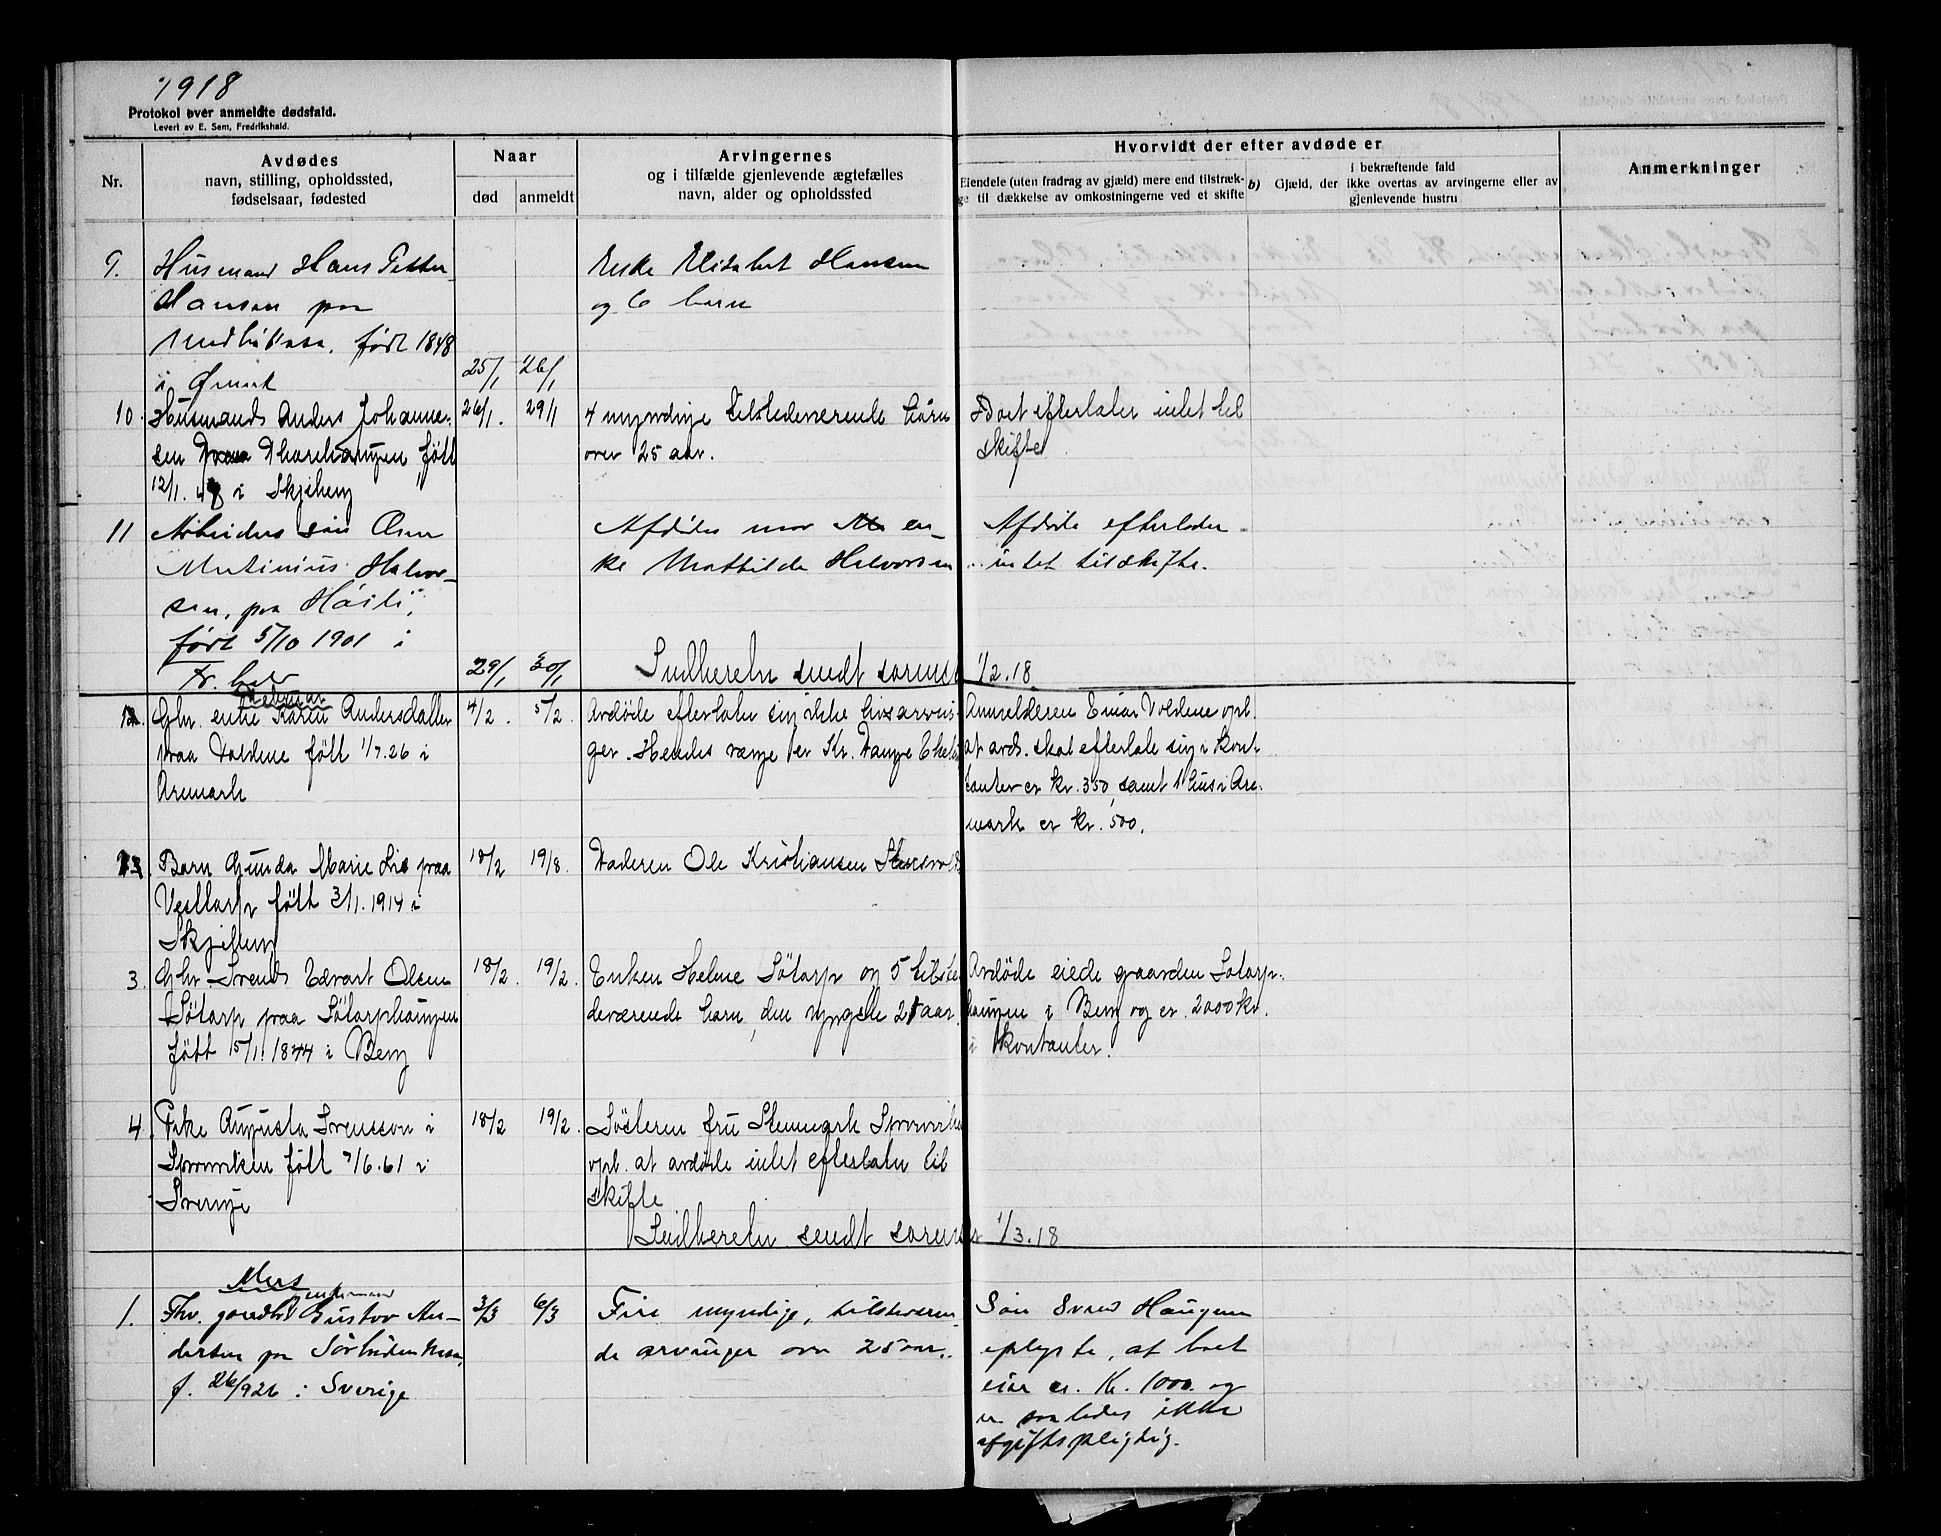 1918
Protokol over anmeldte dødsfald.
Levert av E. Sem, Fredrikshald.
Nr.
Avdødes
navn, stilling, opholdssted,
fødselsaar, fødested
Naar
død
anmeldt
Arvingernes
og i tilfælde gjenlevende ægtefælles
navn, alder og opholdssted
Hvorvidt der efter avdøde er
Eiendele (uten fradrag av gjæld) mere end tilstræk-
ge til dækkelse av omkostningerne ved et skifte
b) Gjæld, der
i bekræftende fald
ikke overtas av arvingerne eller av
gjenlevende hustru
Anmerkninger
9. Husmand Hans Petter
Hansen paa
født 1848
i Ømark
25/1 26/1
Enke Elisabet Hansen
og 6 barn
10. Husmand Anders Johanne-
sen født
12/1. 48 i Skjeberg
26/1. 29/1
4 myndige tilstedeværende børn
over 25 aar.
Boet efterlater intet til
skifte
11 Arbeiders søn Olen
Martinius Halvor-
sen, paa Høili,
født 5/10 1901 i
Fr.hald
29/1 30/1
Afdødes mor en-
ke Mathilde Halvorsen
Afdøde efterlader
intet til skifte.
Indberetn sendt sorensk 1/2.18
Februar
1. Ghr. enke Karen Andersdatter
paa Voldene født 1/7.26 i
Aremark
4/2. 5/2.
Avdøde efterlater sig ikke livsarvin-
ger. Hendes verge er Kr. Vange
Anmelderen Einar Voldene opl.
at avd. skal efterlate sig i kont
tanter ca kr. 350, samt 1 hus i Are-
mark ca kr. 500.
2. Barn Gunda Marie Lie paa
Vesttorp født 3/1.1914 i
Skjeberg
18/2 19/8.
Faderen Ole Kristiansen
3. Ghr. Svend Edvart Olsen
Søtorp paa Søtorphaugen
født 15/1. 1844 i Berg
18/2. 19/2.
Enken Helene Søtorp og 5 tilste
deværende barn, den yngste 25 aar.
Avdøde eiede gaarden Søtorp-
haugen i Berg og ca. 2000 kr.
i kontanter.
4. Pike Augusta Svensson i
Sponviken født 7/6.61 i
Sverige
18/2 19/2.
Søsteren fru Stenmark Sponvike
opl. at avdøde intet efterlater til
skifte
Indberetn sendt sorensk 1/3.18
Mars
enkemand
1. Fhv. gaardbr. Gustav An-
dersen pa
f. 26/9 26 i Sverige
3/3 6/3
Fire myndige, tilsteværen-
de arvinger over 25 aar.
Søn Svend Haugen
oplyste, at boet
eier ca. Kr. 1000 og
er saaledes ikke
afgiftspligtig.